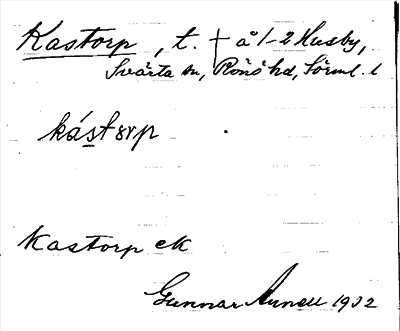 Kastorp, t. † å 1-2 Husby,
Svärta sn, Rönö hd, Sörml. l
kást𝑜rp
Kastorp ek
Gunnar Annell 1932